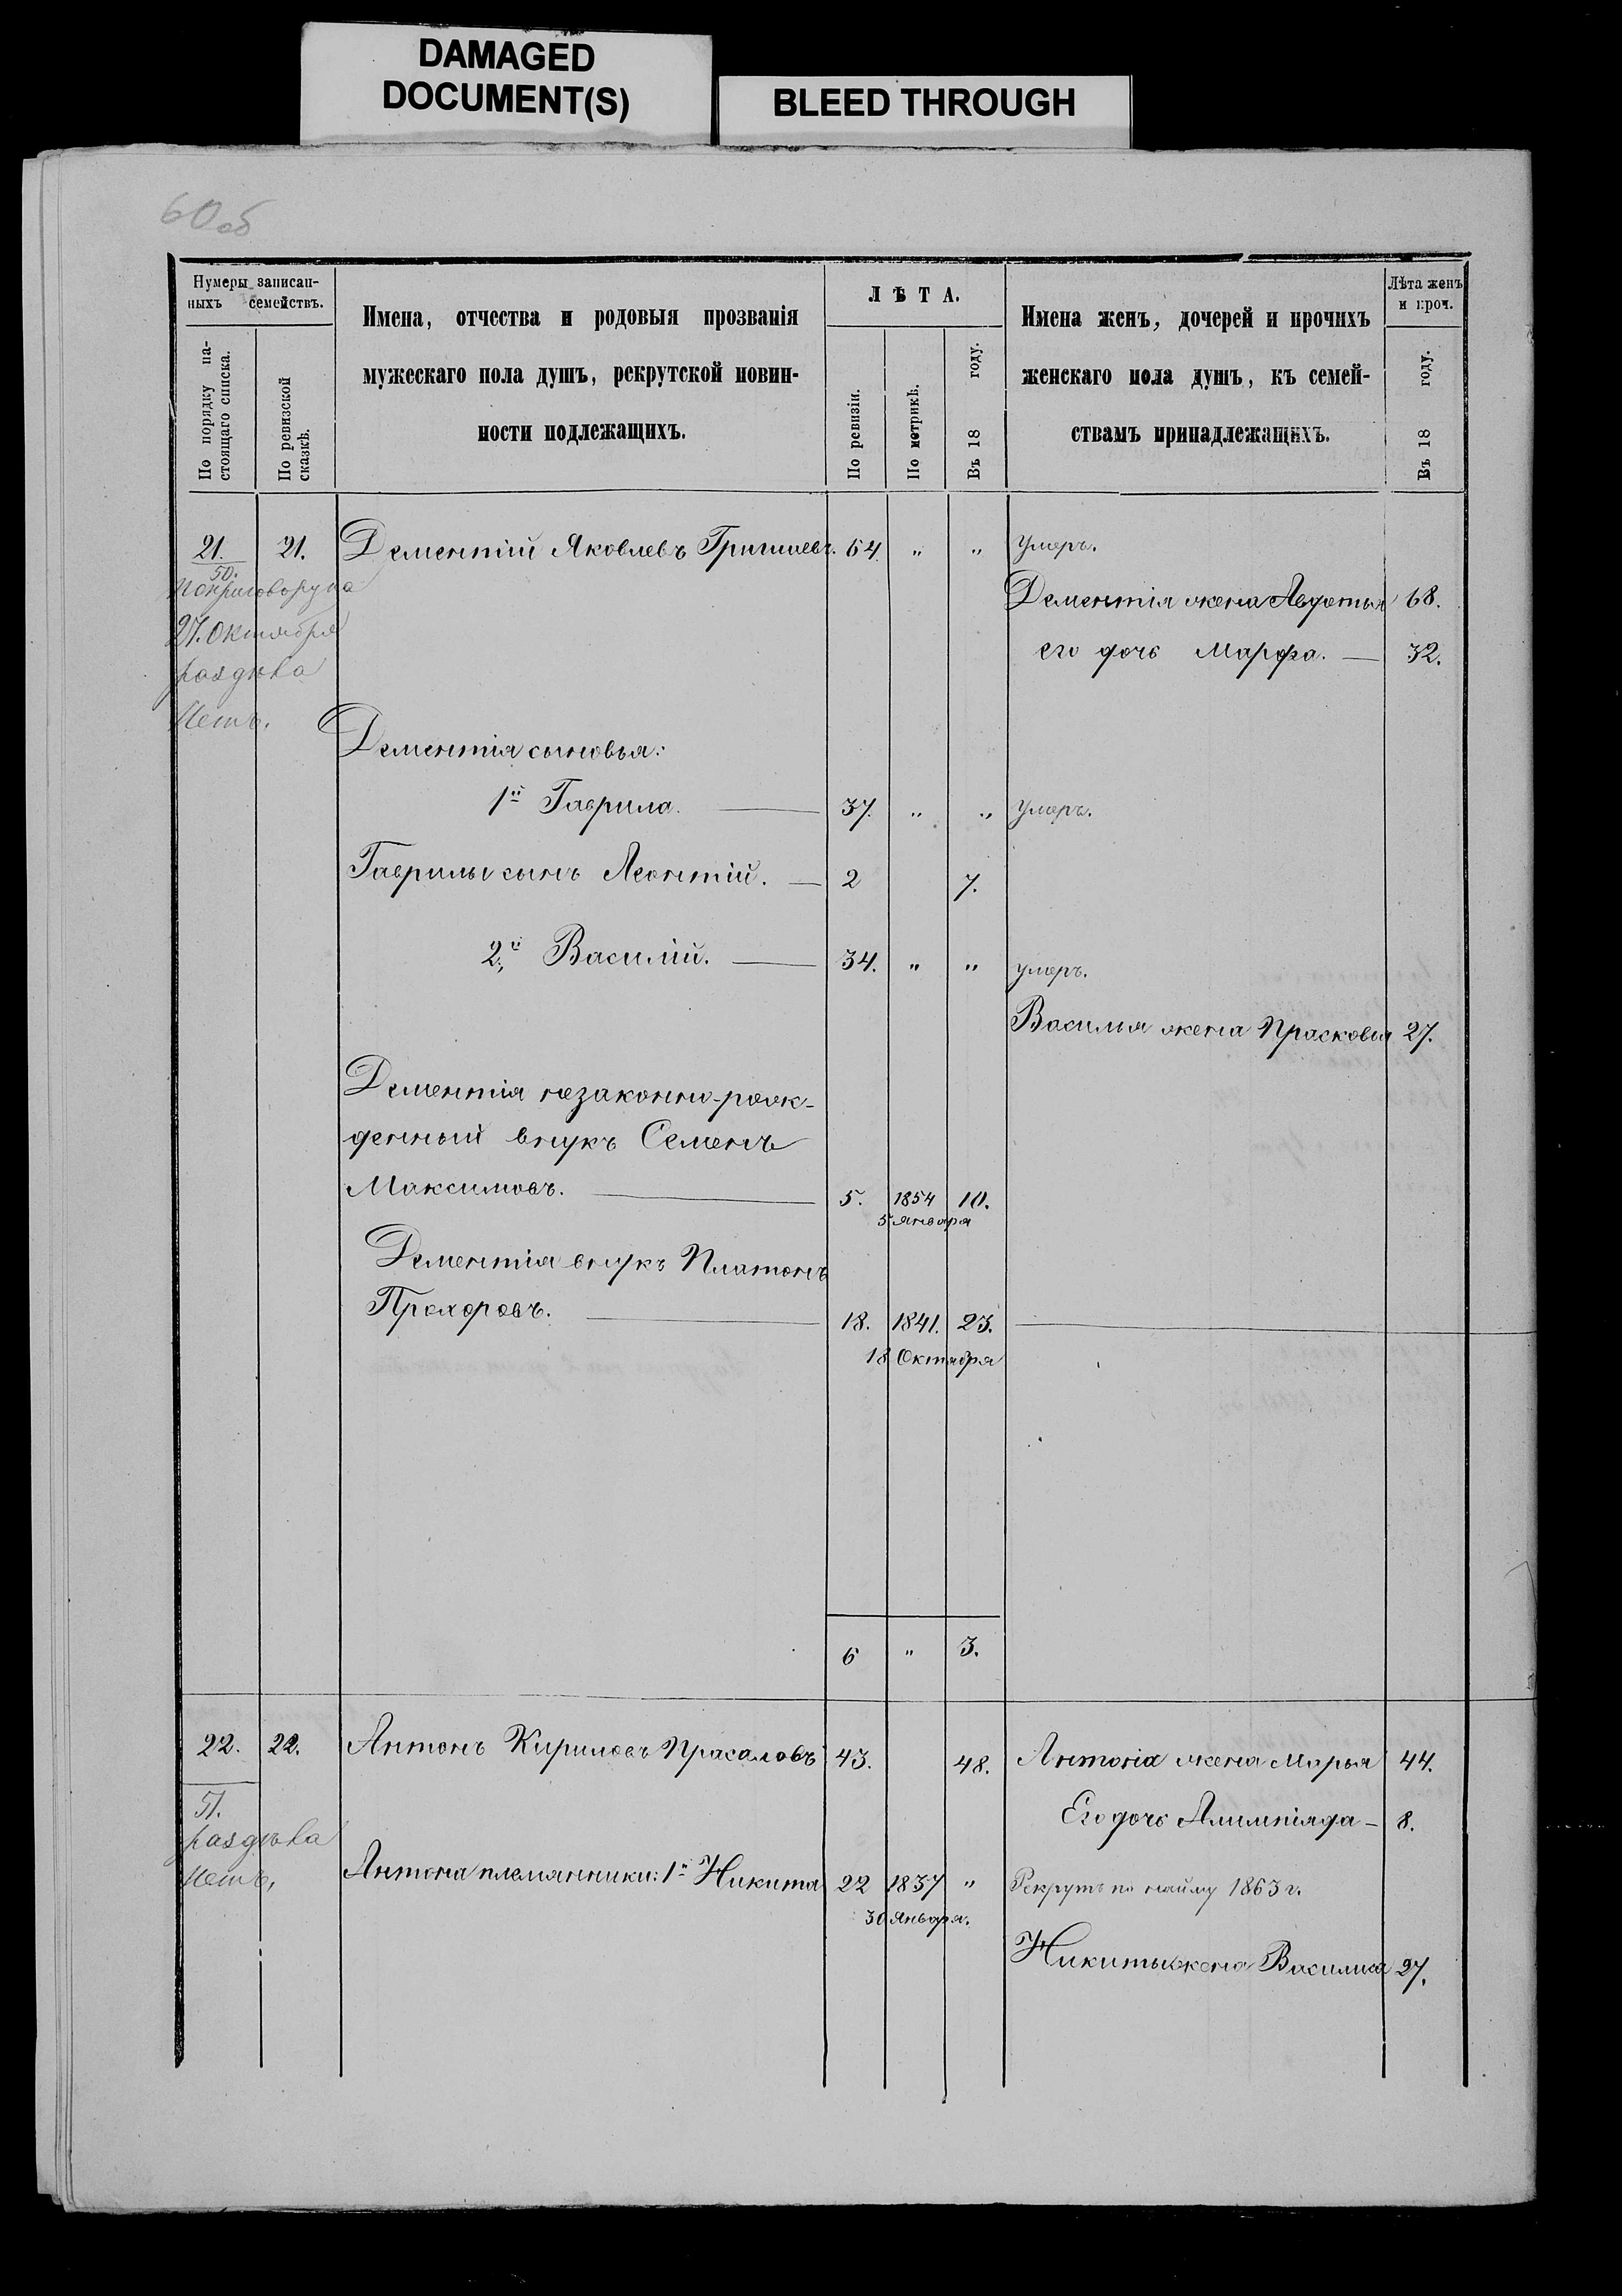 DAMAGED
DOCUMENT(S)
BLEED THROUGH
60 об
Нумеры записан-
ныхъ семействъ.
По порядку на-
стоящаго списка.
По ревизской
сказкѣ.
Имена, отчества и родовыя прозванія
мужескаго пола душъ, рекрутской повин-
ности подлежащихъ.
ЛѢТА.
По ревизіи.
По метрикѣ.
Въ 18 году.
Имена женъ, дочерей и прочихъ
женскаго пола душъ, къ семей-
ствамъ принадлежащихъ.
Лѣта женъ
и проч.
Въ 18 году.
21. 21. Дементій Яковлевъ 64. " " умеръ.
50.
По приговору на
27. Октября
раздѣла
Нетъ.
Дементія жена Авдотья 68.
его дочь Марфа. — 32.
Дементія сыновья:
1й Гаврила. — 37. " " умеръ.
Гаврилы сынъ Леонтій. — 2 7.
2й Василій. — 34. " " умеръ.
Василія жена Прасковья 27.
Дементія незаконно-рож-
денный внукъ Семенъ
Максимовъ. — 5. 1854 10.
5 января
Дементія внукъ Платонъ
Прохоровъ. — 18. 1841. 23.
18 Октября
6 " 3.
22. 22. Антонъ Кириловъ Прасаловъ 43. 48. Антона жена Марья 44.
51.
раздѣла
Нетъ,
Его дочь Алимпіада — 8.
Антона племянники: 1й Никита 22 1837 " Рекрутъ по найму 1863 г.
30 Января.
Никиты жена Василиса 27.